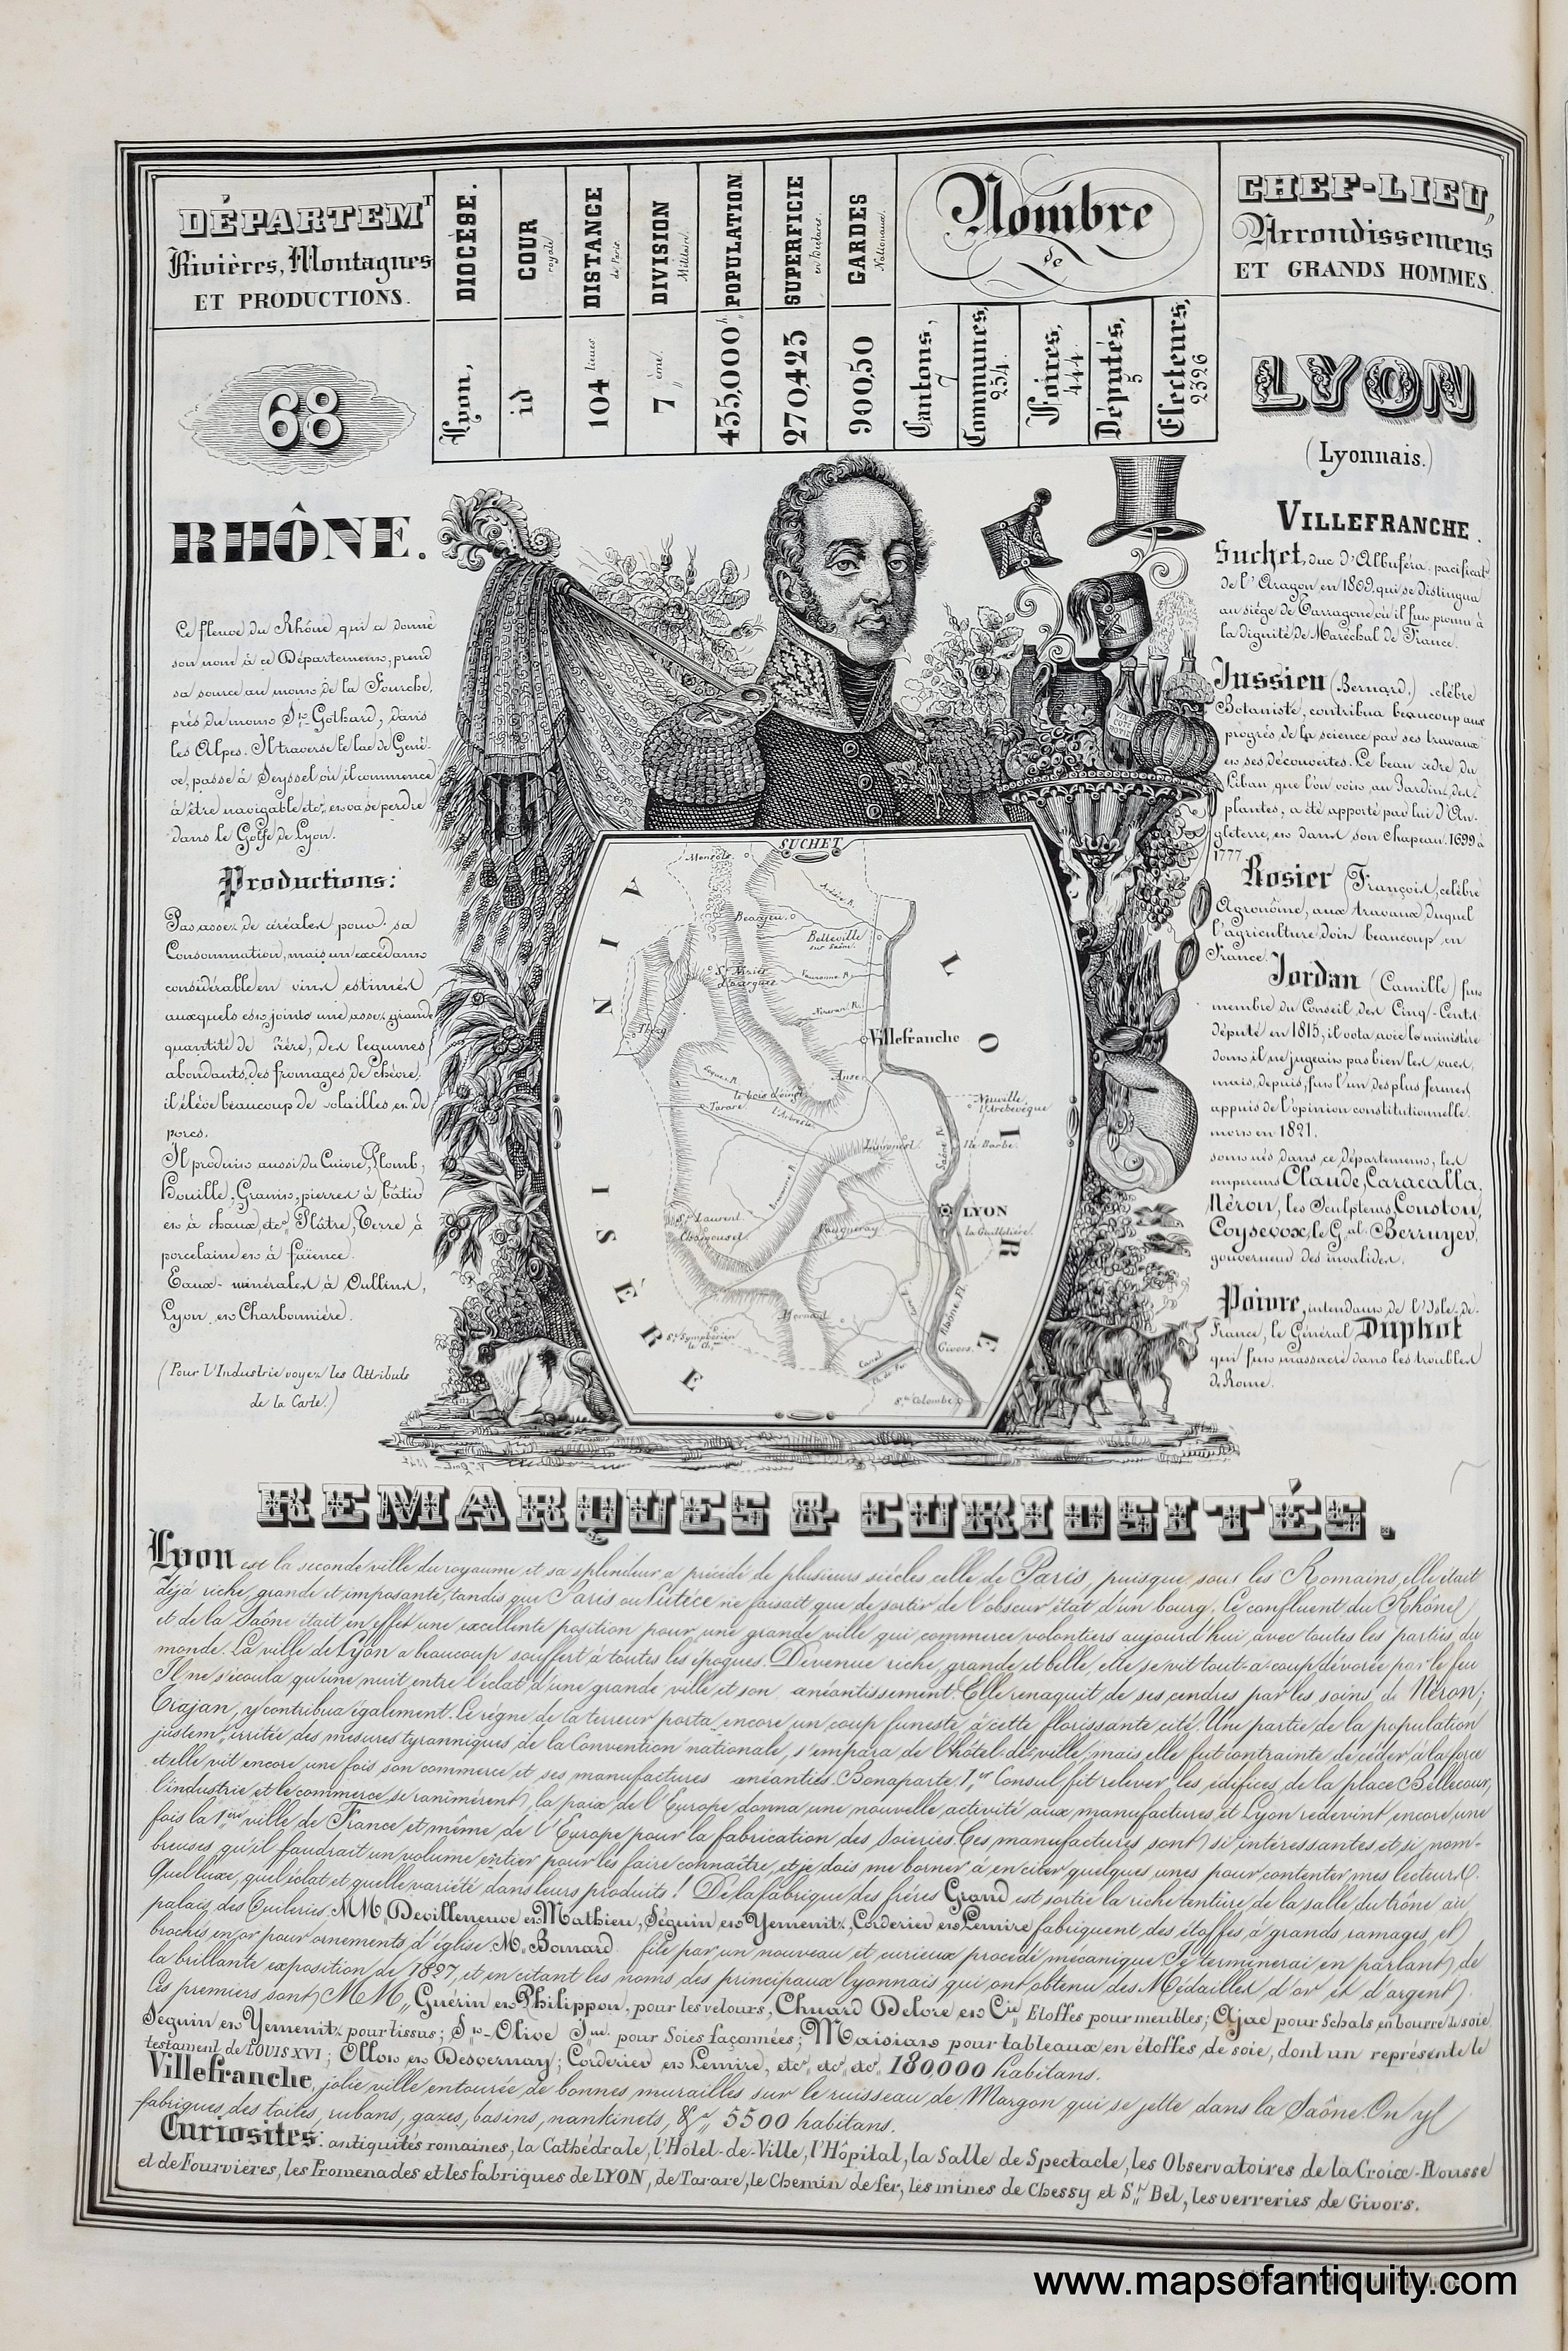 DÉPARTEMT
Rivières, Montagnes
ET PRODUCTIONS.
DIOCÈSE.
COUR
royale
DISTANCE
de Paris
DIVISION
Militaire.
POPULATION
SUPERFICIE
en hectares.
GARDES
Nationaux.
Nombre
de
CHEF-LIEU,
Arrondissemens
ET GRANDS HOMMES.
Lyon,
id
104 lieues
7,, ème.
435,000 h,,
270,423
900,50
Cantons,
Communes,
254.
Foires,
444.
Députés,
5
Electeurs,
2326
68
RHÔNE.
Ce fleuve du Rhône qui a donné
son nom à ce Département, prend
sa source au mont de la Fourche,
près du mont St. Gothard, dans
les Alpes. Il traverse le lac de Genè-
ve, passe à Seyssel où il commence
à être navigable etc,, et va se perdre
dans le Golfe de Lyon.
Productions:
Pas assez de céréales pour sa
Consommation, mais un excédant
considérable en vins estimés
auxquels est joints une assez grande
quantité de des legumes
abondants, des fromages de chèvre,
il élève beaucoup de volailles et de
porcs.
Il produit aussi du Cuivre, Plomb,
Houille, Granit, pierres à bâtir
et à chaux, etc,, Plâtre, Terre à
porcelaine et à faïence.
Eaux-minérales à Oullins,
Lyon et Charbonnière.
(Pour l'Industrie voyez les Attributs
de la Carte.)
LYON
(Lyonnais.)
VILLEFRANCHE.
Suchet, duc d'Albuféra, pacificat.
de l'Aragon en 1809, qui se distingua
au siége de Tarragone où il fut promu à
la dignité de Maréchal de France.
Jussieu (Bernard.) célèbre
Botaniste, contribua beaucoup aux
progrès de la science par ses travaux
et ses découvertes. Le beau cèdre du
Liban que l'on voit au Jardin des
plantes, a été apporté par lui d'An-
gleterre, et dans son Chapeau. 1699 à
1777.
Rosier (François, célèbre
Agronôme, aux travaux duquel
l'agriculture doit beaucoup en
France.
Jordan (Camille) fut
membre du Conseil des Cinq-Cents
député en 1815, il vota avec le ministère
dont il ne jugeait pas bien les vues,
mais, depuis, fut l'un des plus fermes
appuis de l'opinion constitutionnelle.
mort en 1821.
sont nés dans ce Département, les
empereurs Claude, Caracalla,
Néron, les Sculpteurs Couston,
Coysevox, le Gal. Berruyer,
gouverneur des invalides.
Poivre, intendant de l'Isle-de-
France, le Général Duphot
qui fut massacré dans les troubles
de Rome.
SUCHET
Monsols
Beaujeu
Ardière R.
Belleville
sur Saône.
Vauxonne R.
Thizy
Villefranche
Anse
le bois d'oingt
Tarare
l'Arbresle
Neuville
l'Archevêque
Saône R.
Ile Barbe
LYON
la Guillotière
St. Laurent
Chamousset
Vaugneray
Mornant
St. Symphorien
le Ch.
Givors.
Rhône Fl.
Canal
Ch. de Fer
Ste. Colombe
AIN
LOIRE
ISÈRE
REMARQUES & CURIOSITÉS.
Lyon est la seconde ville du royaume et sa splendeur a précédé de plusieurs siècles celle de Paris, puisque, sous les Romains, elle était
déjà riche, grande et imposante, tandis que Paris ou Lutéce ne faisait que de sortir de l'obscur état d'un bourg. Le confluent du Rhône
et de la Saône était en effet une excellente position pour une grande ville qui commerce volontiers aujourd'hui avec toutes les parties du
monde. La ville de Lyon a beaucoup souffert à toutes les époques. Devenue riche, grande et belle, elle se vit tout-à-coup dévorée par le feu
Il ne s'écoula qu'une nuit entre l'éclat d'une grande ville et son anéantissement. Elle renaquit de ses cendres par les soins de Néron;
Trajan, y contribua également. Le règne de la terreur porta encore un coup funeste à cette florissante cité. Une partie de la population
justemt,, irritée des mesures tyranniques de la Convention nationale, s'empara de l'hôtel-de-ville; mais elle fut contrainte de céder à la force
et elle vit encore une fois son commerce et ses manufactures anéanties. Bonaparte, 1,,er Consul, fit relever les édifices de la place Bellecour,
l'industrie et le commerce se ranimèrent, la paix de l'Europe donna une nouvelle activité aux manufactures, et Lyon redevint encore une
fois la 1,,ère ville de France et même de l'Europe pour la fabrication des Soieries. Ces manufactures sont si intéressantes et si nom-
breuses qu'il faudrait un volume entier pour les faire connaître, et je dois me borner à en citer quelques unes pour contenter mes lecteurs.
Quel luxe, quel éclat et quelle variété dans leurs produits! De la fabrique des fréres Grand est sortie la riche tenture de la salle du trône au
palais des Tuileries. MM,, Devilleneuve et Mathieu, Séguin et Yemenitz, Corderier et Lemire fabriquent des étoffes à grands ramages et
brochés en or pour ornements d'église M,, Bonnard file par un nouveau et curieux procédé mécanique Je terminerai en parlant de
la brillante exposition de 1827, et en citant les noms des principaux lyonnais qui ont obtenu des Médailles d'or et d'argent.
Ces premiers sont MM,, Guérin et Philippon, pour les velours, Chuard Delore et Cie,, Etoffes pour meubles; Ajac pour Schals en bourre de soie
Seguin et Yemenitz pour tissus; St-Olive Jne. pour Soies façonnées; Maisiat pour tableaux en étoffes de soie, dont un représente le
testament de LOUIS XVI; Ollot et Desvernay; Corderier et Lemire, etc, etc, etc. 180,000 habitans.
Villefranche, jolie ville entourée de bonnes murailles sur le ruisseau de Morgon qui se jette dans la Saône. On y
fabriques des toiles, rubans, gazes, basins, nankinets, &c,, 5500 habitans.
Curiosités: antiquités romaines, la Cathédrale, l'Hôtel-de-Ville, l'Hôpital, la Salle de Spectacle, les Observatoires de la Croix-Rousse
et de Fourvières, les Promenades et les fabriques de LYON, de Tarare, le Chemin de fer, les mines de Chessy et St,, Bel, les verreries de Givors.
www.mapsofantiquity.com